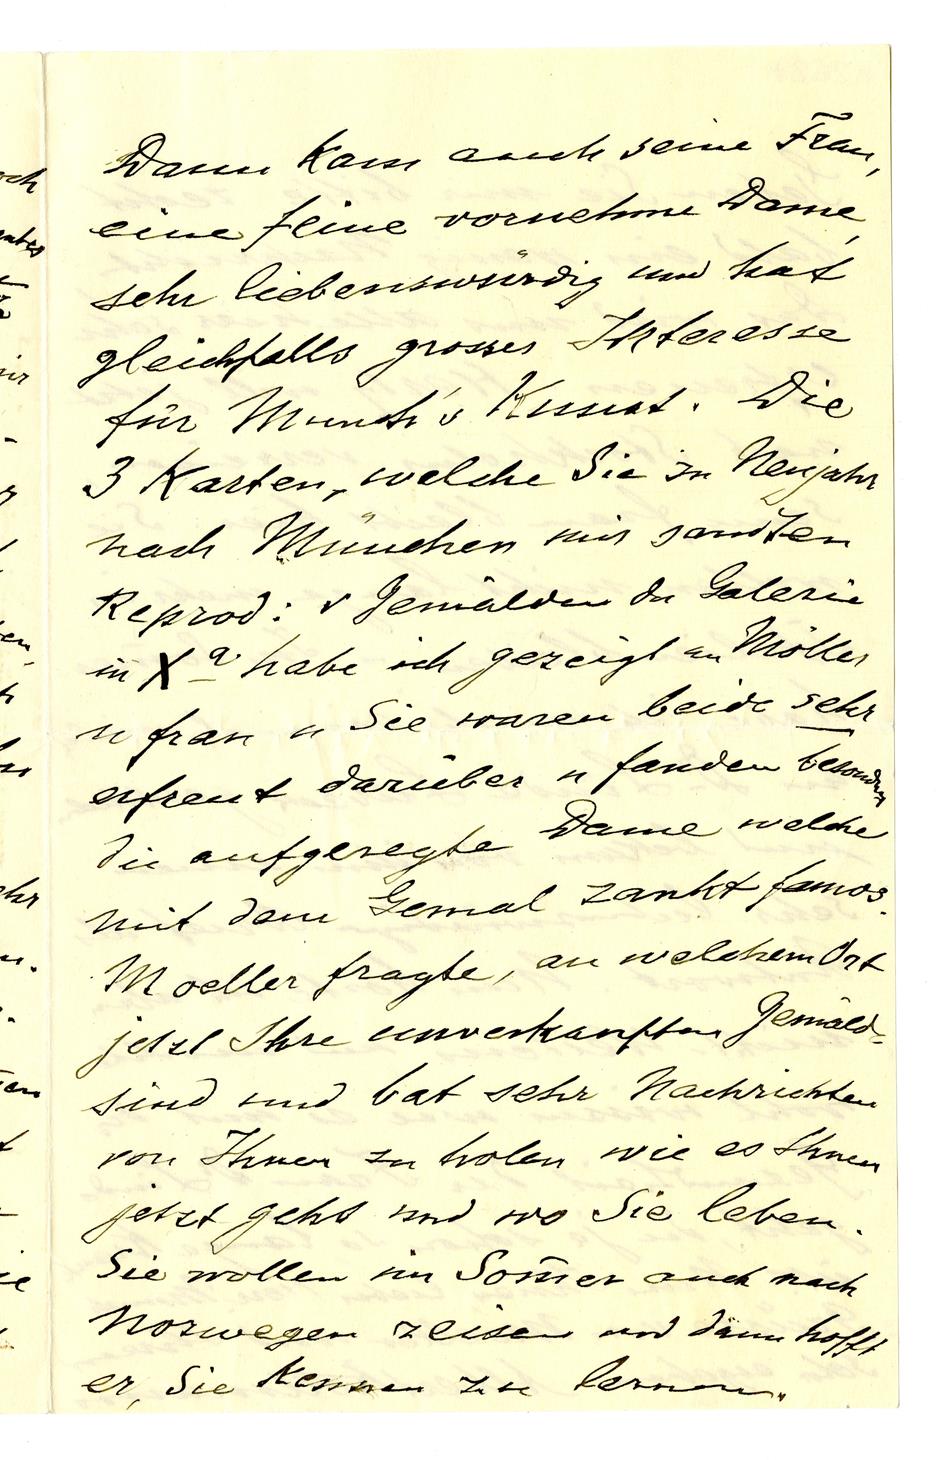 Dann kam auch seine Frau,
eine feine vornehme Dame,
sehr liebenswürdig und hat
gleichfalls grosses Interesse
für Munch's Kunst. Die
3 Karten, welche Sie zu Neujahr
nach München mir sandten
Reprod: v Gemälden der Galerie
in X<sup>a</sup> habe ich gezeigt an Möller
u frau u Sie waren beide sehr
erfreut darüber u fanden besonders
die aufgeregte Dame welche
mit dem Gemal zankt famos.
Moeller fragte, an welchem Ort
jetzt Ihre unverkauften Gemäld-
sind und bat sehr Nachrichten
von Ihnen zu holen wie es Ihnen
jetzt geht und wo Sie leben.
Sie wollen im Som̄er auch nach
Norwegen reisen und dann hofft
er, Sie kennen zu lernen.